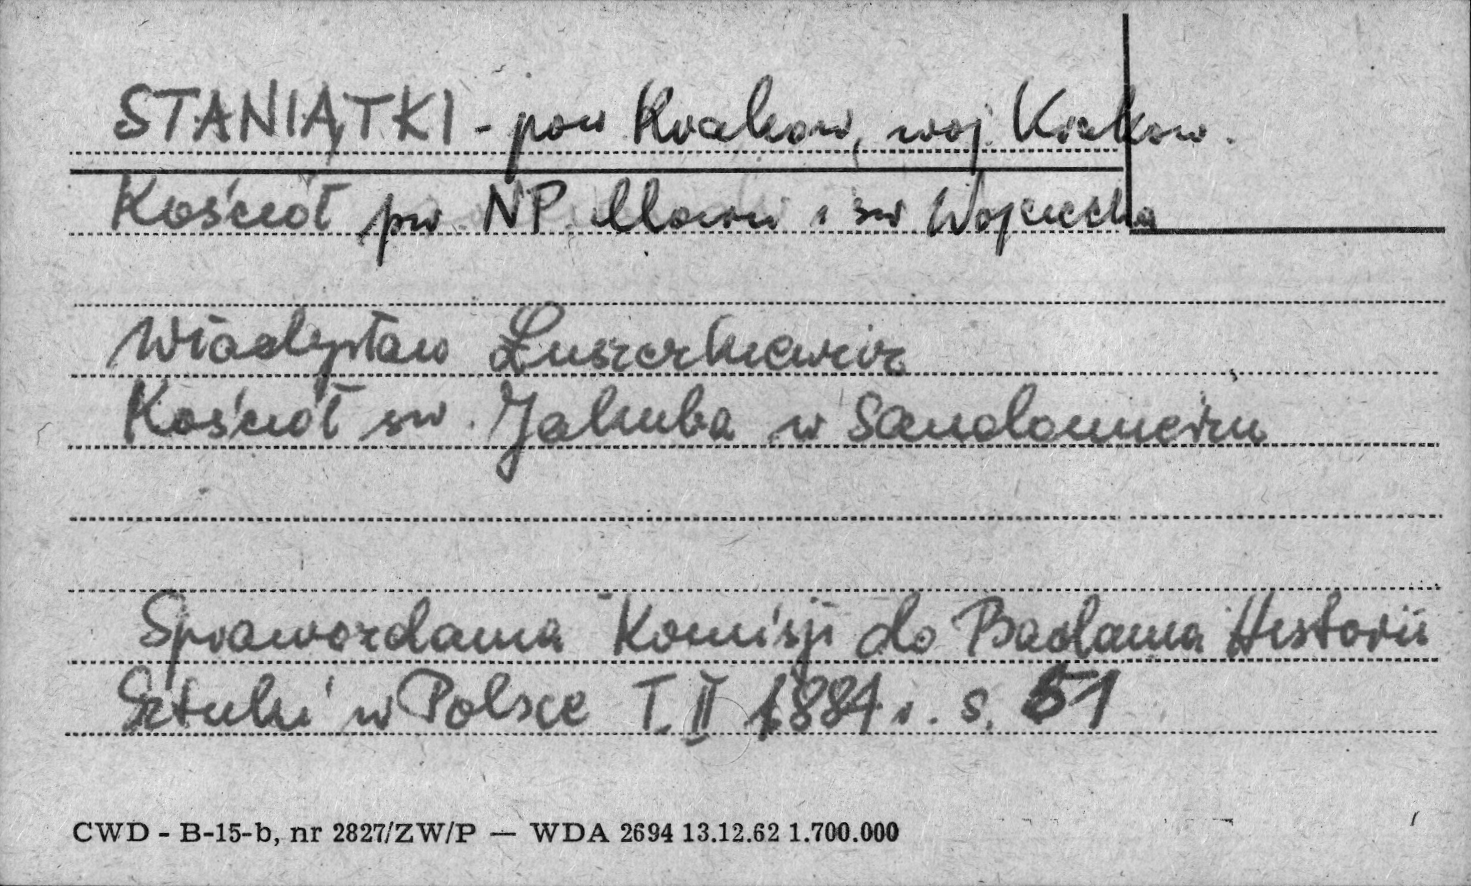 STANIĄTKI - pow Kraków, woj. Kraków.
Kościół pw. NP. Marii i św Wojciecha
Władysław Łuszczkiewicz
Kościół św. Jakuba w Sandomierzu
Sprawozdania Komisji do Badania Historii
Sztuki w Polsce T. II 1881 r. s. 51
CWD - B-15-b, nr 2827/ZW/P — WDA 2694 13.12.62 1.700.000